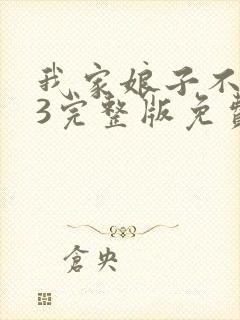 我家娘子不
3完整版免费
仓央